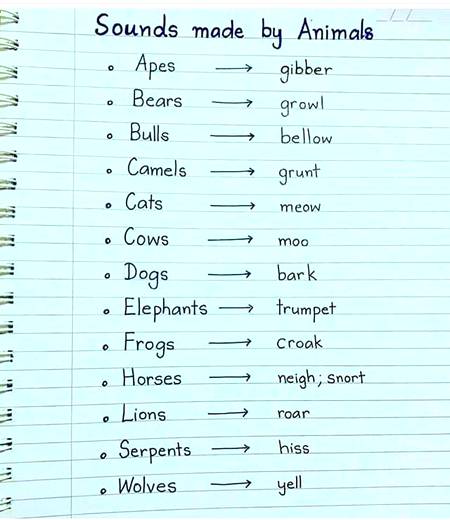 Sounds made by Animals
• Apes → gibber
• Bears → growl
• Bulls → bellow
• Camels → grunt
• Cats → meow
• Cows → moo
• Dogs → bark
• Elephants → trumpet
• Frogs → croak
• Horses → neigh; snort
• Lions → roar
• Serpents → hiss
• Wolves → yell